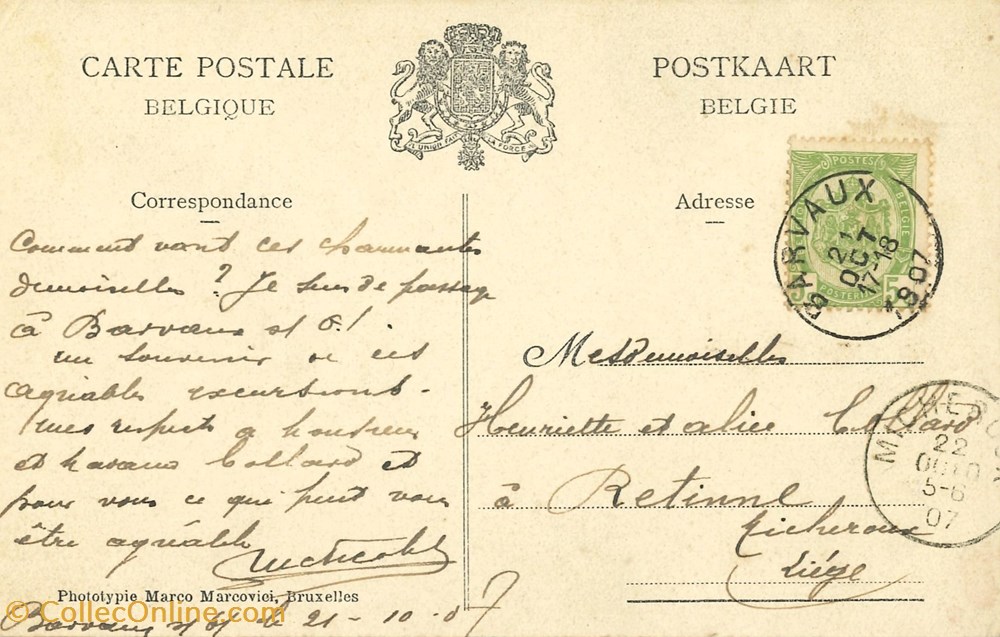 CARTE POSTALE
BELGIQUE
POSTKAART
BELGIE
L'UNION FAIT LA FORCE
Correspondance
Adresse
POSTES
BELGIE
POSTERIJEN
5 5
BARVAUX
21
OCT
17-18
1907
Comment vont ces charmantes
demoiselles ? Je suis de passage
à Barvaux s/ O !
un souvenir de ces
agréables excursions.
mes respects a
et Collard et
pour vous ce qui peut vous
être agréable
Mesdemoiselles
Henriette et alice Collard
à Retinne
Liége
22
5-6
07
Phototypie Marco Marcovici, Bruxelles
Barvaux s/ O le 21 - 10 - 07
© CollecOnline.com